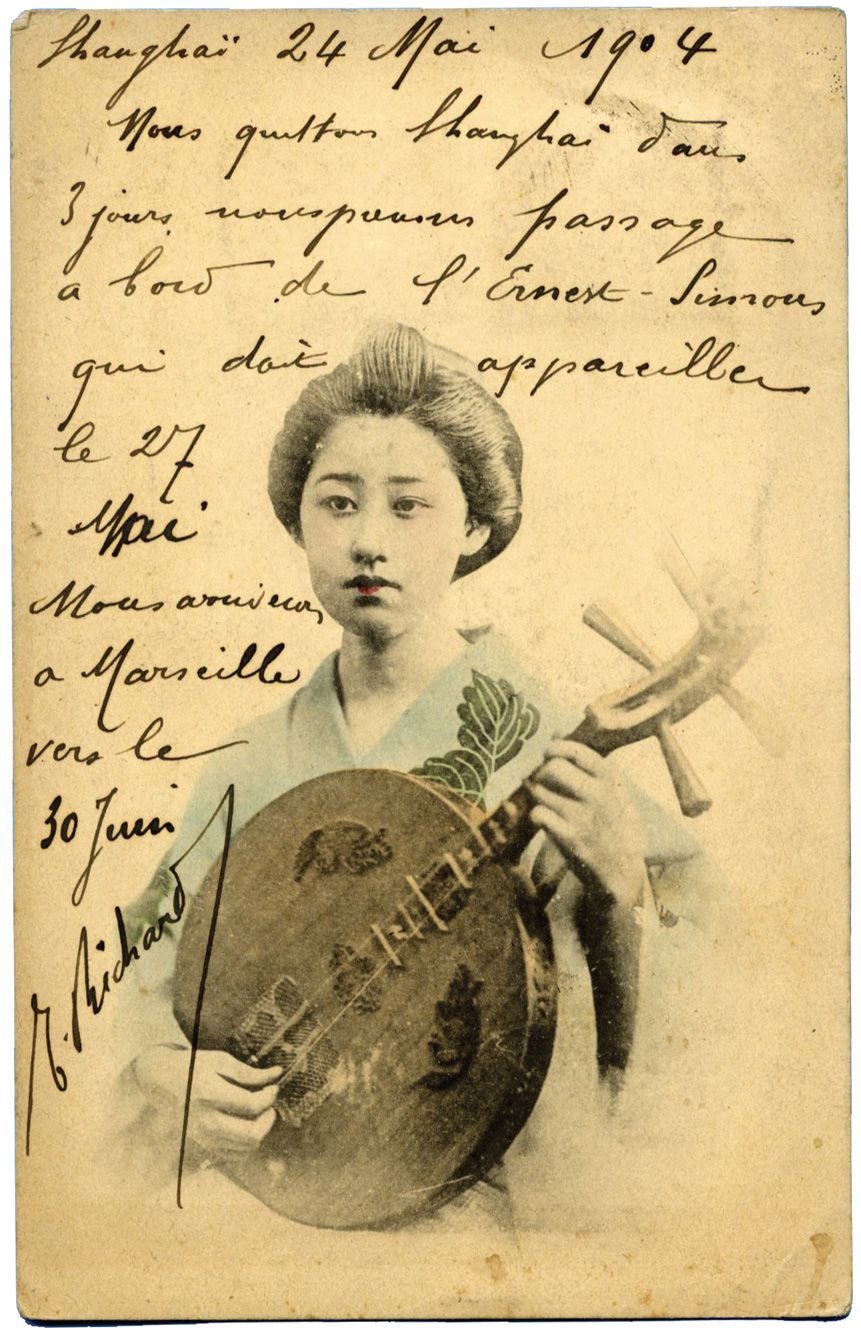 Shanghaï 24 Mai 1904
Nous quittons Shanghaï dans
3 jours, nous prenons passage
a bord de l'Ernest-Simons
qui doit appareiller
le 27
Mai
Nous arriverons
a Marseille
vers le
30 Juin
Richard